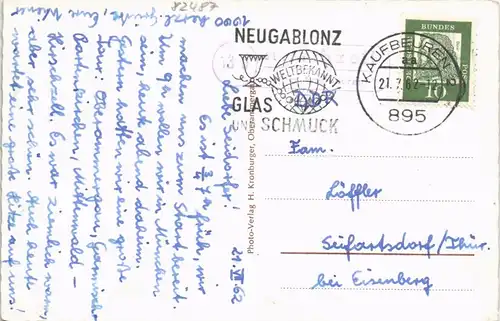 82487
1000 herzl. Grüße, Eure Wiener
21.VII.62
Liebe Seidorfer!
Es ist 3/4 7 früh, wir
machen uns zum Start bereit.
Um 9h wollen wir in München
sein, heute abend daheim.
Gestern hatten wir eine große
Tour: Oberammergau, Garmisch-
Partenkirchen, Mittenwald –
Es war ziemlich warm,
aber sehr schön. Auch heute
wartet die große Hitze auf uns!
Photo-Verlag H. Kronburger, Oberammergau
NEUGABLONZ
WELTBEKANNT
GLAS
UND SCHMUCK
KAUFBEUREN
aa
21.7.62
895
DEUTSCHE
BUNDESPOST
10
DDR
Fam.
Löffler
Seifartsdorf/Thür.
bei Eisenberg